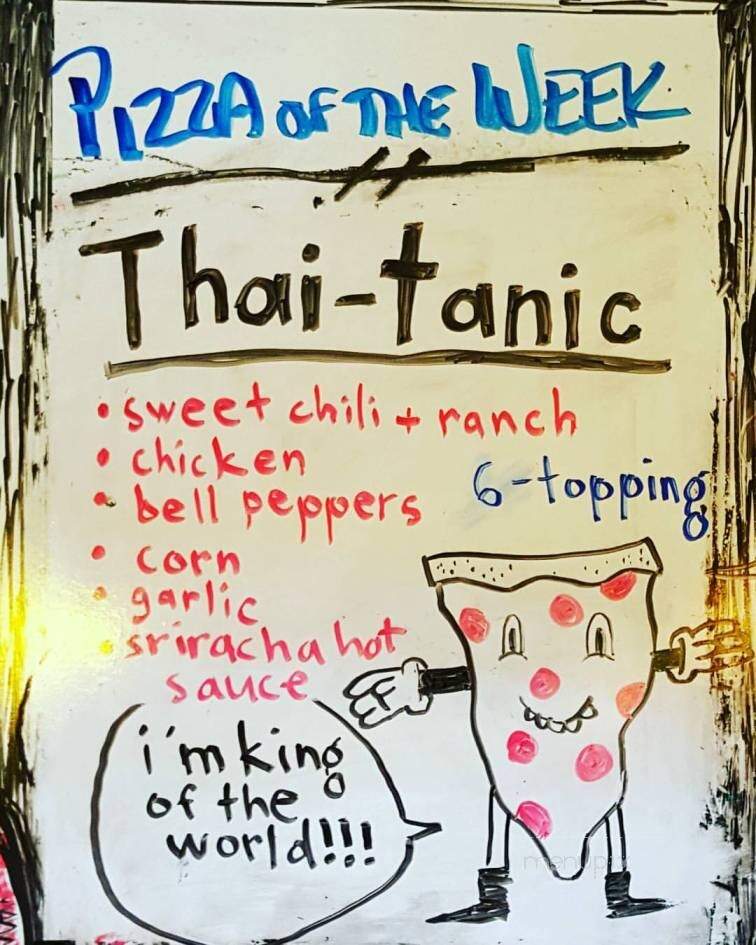 PIZZA OF THE WEEK
Thai-tanic
• sweet chili + ranch
• chicken
• bell peppers
6-topping
• corn
• garlic
• sriracha hot
sauce
i'm king
of the
world!!!